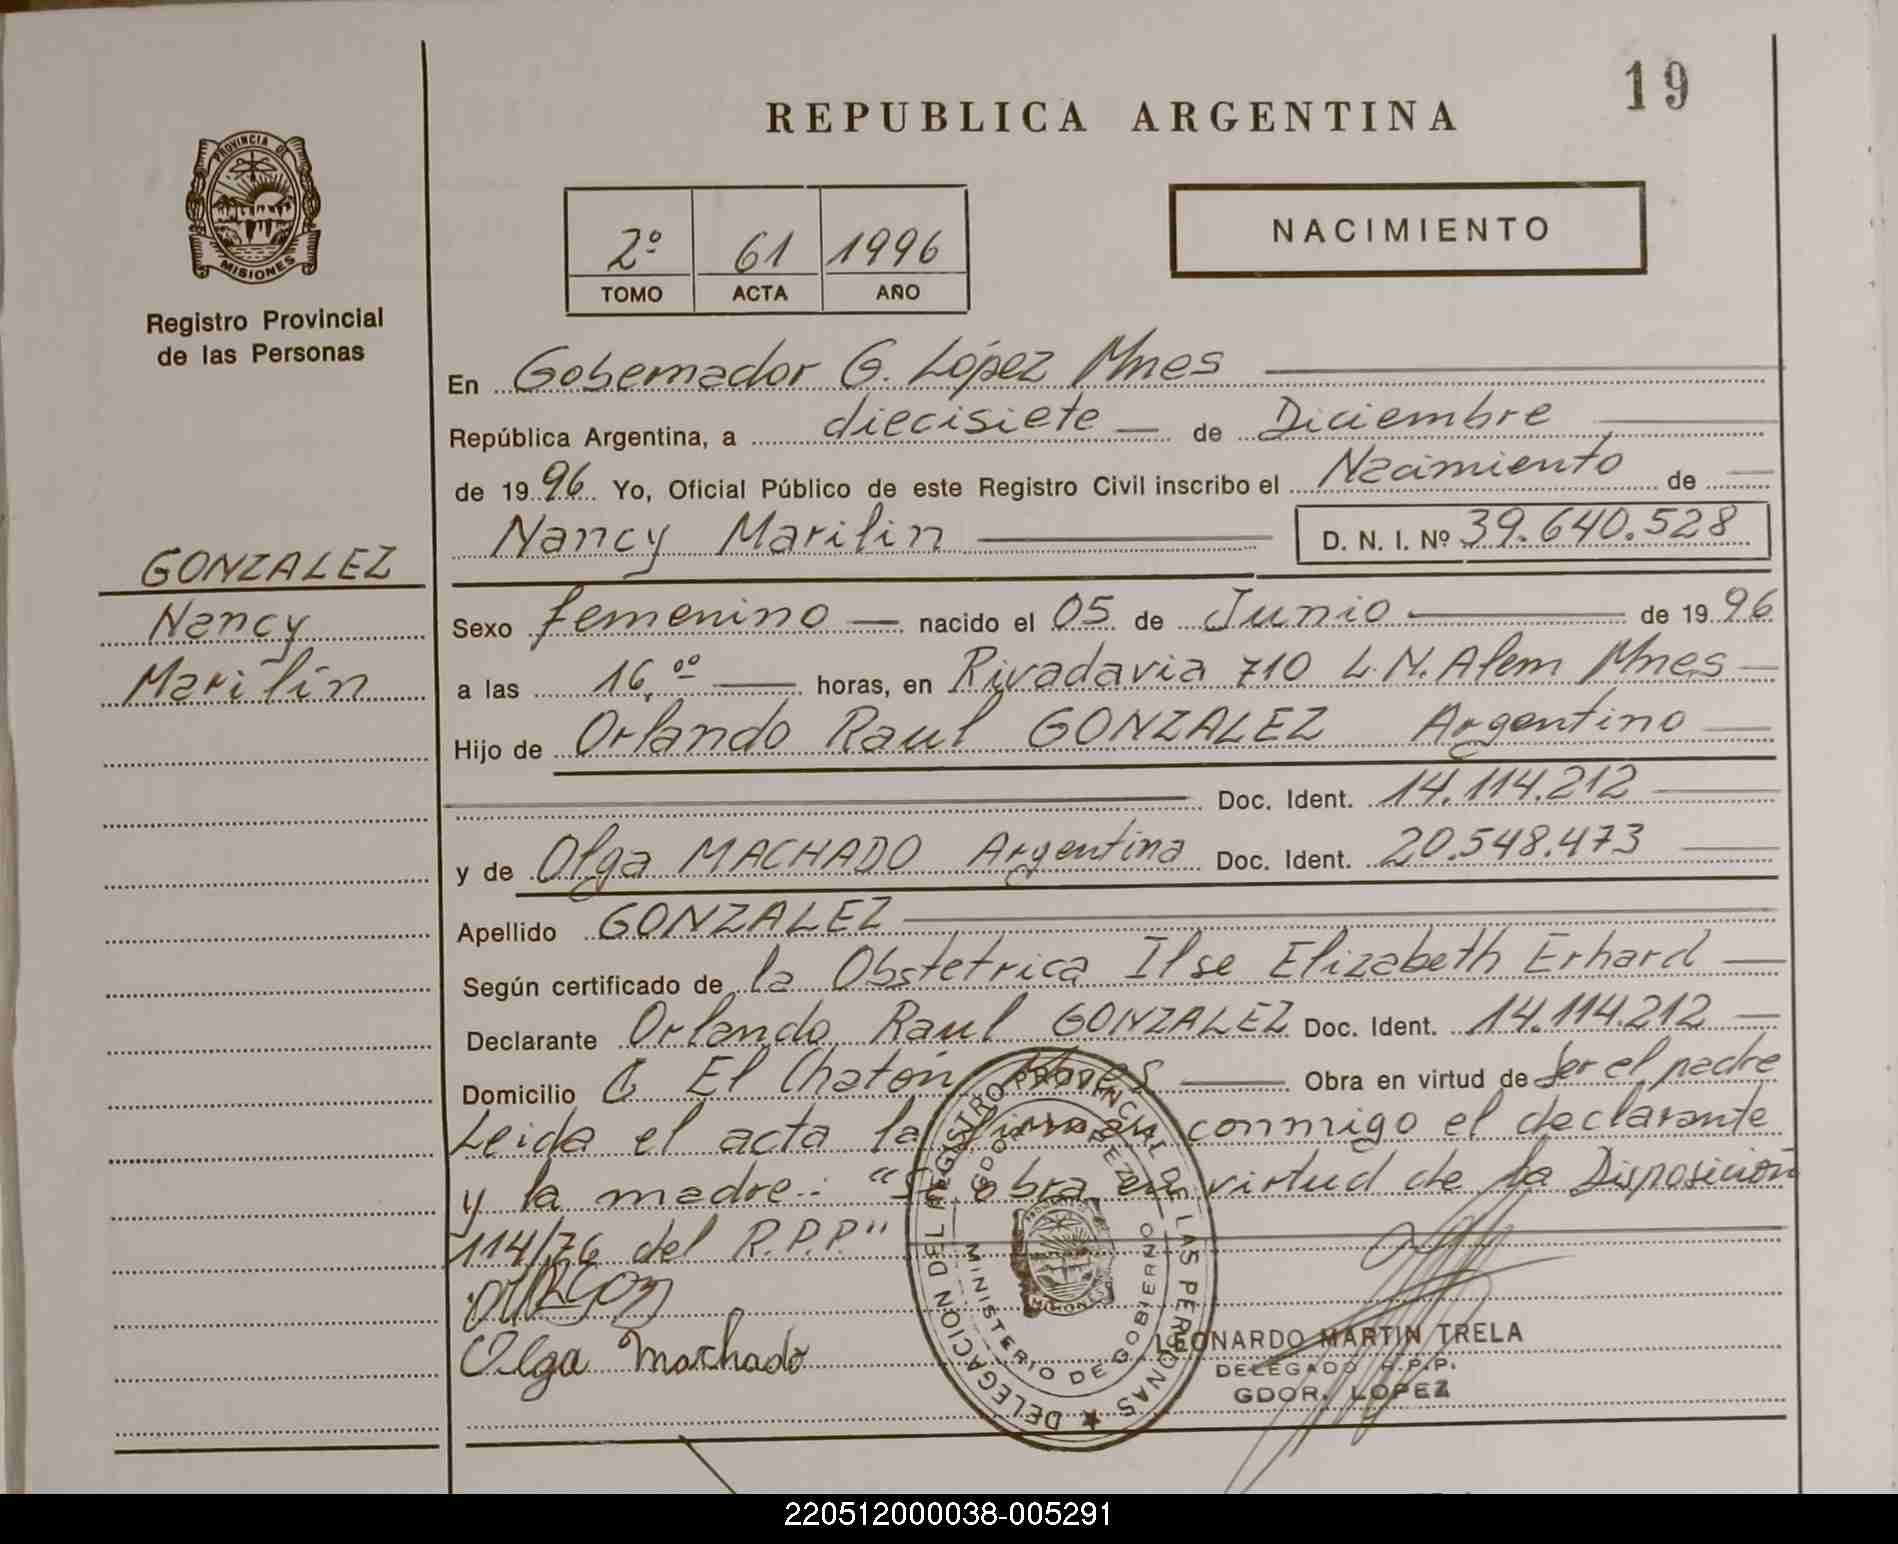 19
REPUBLICA ARGENTINA
PROVINCIA DE
MISIONES
Registro Provincial
de las Personas
2º 61 1996
TOMO ACTA AÑO
NACIMIENTO
En Gobernador G. López Mnes
República Argentina, a diecisiete de Diciembre
de 1996 Yo, Oficial Público de este Registro Civil inscribo el Nacimiento de
Nancy Marilin D. N. I. Nº 39.640.528
GONZALEZ
Nancy
Marilin
Sexo femenino nacido el 05 de Junio de 1996
a las 16,ºº horas, en Rivadavia 710 L.N.Alem Mnes
Hijo de Orlando Raul GONZALEZ Argentino
Doc. Ident. 14.114.212
y de Olga MACHADO Argentina Doc. Ident. 20.548.473
Apellido GONZALEZ
Según certificado de la Obstetrica Ilse Elizabeth Erhard
Declarante Orlando Raul GONZALEZ Doc. Ident. 14.114.212
Domicilio El Chatón Mnes Obra en virtud de Ser el padre
Leida el acta la firman conmigo el declarante
y la madre.: "Se obra en virtud de la Disposición
114/76 del R.P.P."
Olga Machado
DELEGACION DEL REGISTRO PROVINCIAL DE LAS PERSONAS
GDOR. LOPEZ
MINISTERIO DE GOBIERNO
MISIONES
LEONARDO MARTIN TRELA
DELEGADO R.P.P.
GDOR. LOPEZ
220512000038-005291